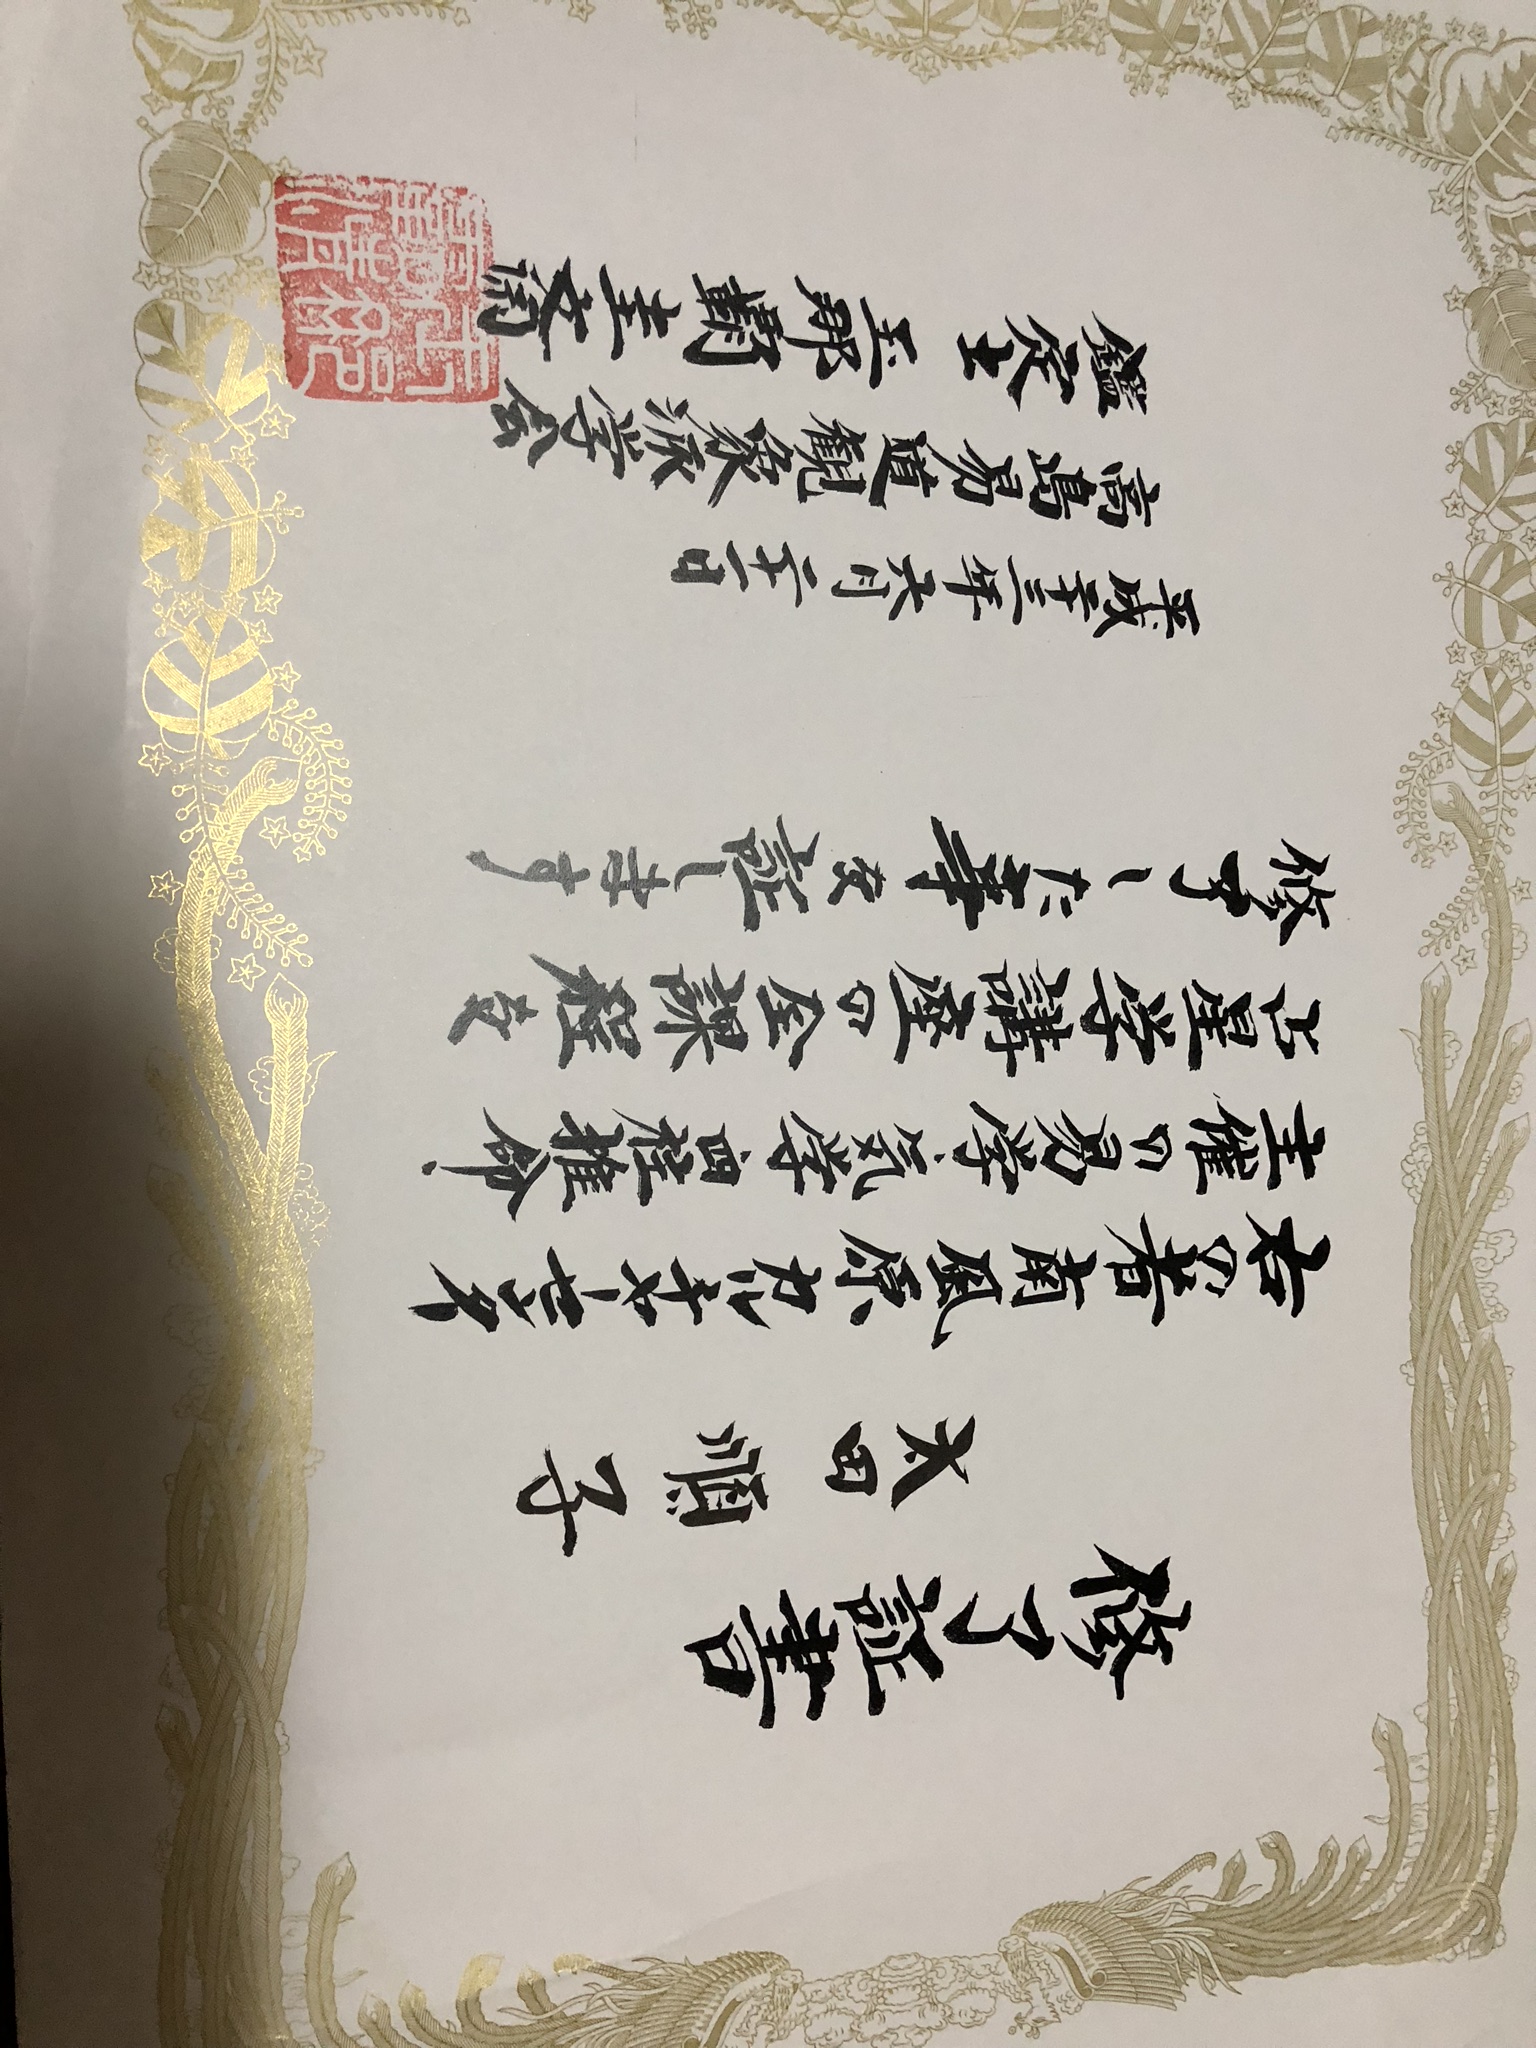 修了証書
太田順子
右の者南風原カルチャーセンター
主催の易学・気学・四柱推命・
占星学講座の全課程を
修了した事を証します
平成二十三年六月二十一日
高島易道観象派学会
鑑定士 玉那覇